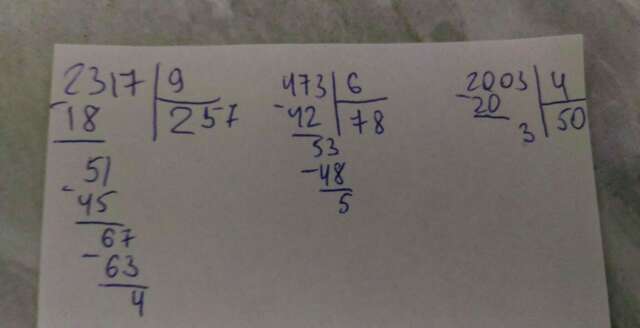 2317 9
- 18 257
51
- 45
67
- 63
4
473 6
- 42 78
53
- 48
5
2003 4
- 20 50
3